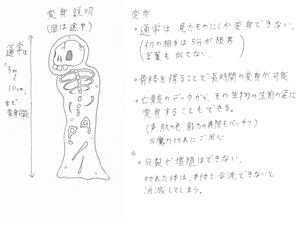 変身 説明
(図は途中)
通常は
3m
~
10cm
まで
変身可能
変身
・通常は 見たものにしか変身できない。
(初の相手は 5分が限界
言葉も 似てない)
・骨格を得ることで長時間の変身が可能
・亡骸のデータから、その生物の生前の姿に
変身することもできる。
(声、肌の色、能力の再現もバッチリ)
※魔力切れにご用心
・分裂や増殖はできない。
切れた体は、本体と合流できないと
消滅してしまう。